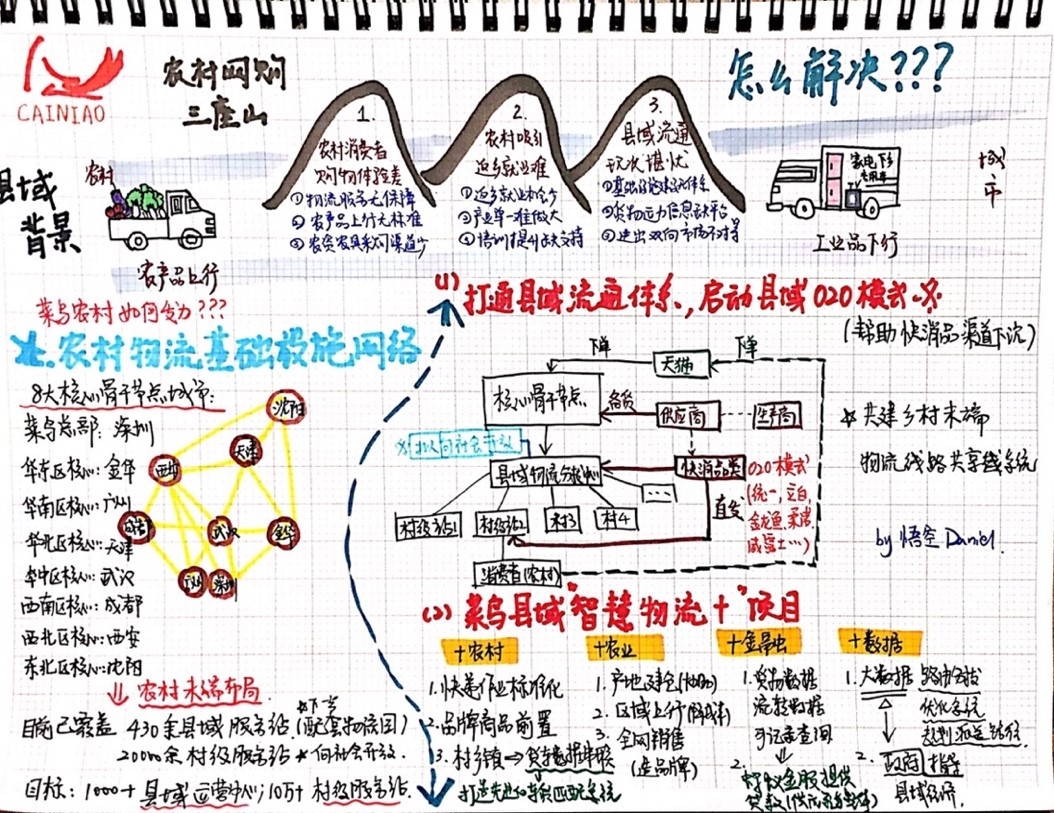 CAINIAO
农村网购
三座山
县域
背景
农村
农产品上行
1.
农村消费者
购物体验差
①物流服务无保障
②农产品上行无标准
2.
农村吸引
返乡就业难
①返乡就业机会少
②产业单一难做大
③培训提升缺支持
3.
县域流通
现次堪忧
①基础设施建设无体系
②货物运力信息缺平台
③进出双向市场不对等
怎么解决???
家电下乡
专用车
工业品下行
城
市
菜鸟农村如何发力???
农村物流基础设施网络
8大核心骨干节点城市:
菜鸟总部: 深圳
华东区核心: 金华
华南区核心: 广州
华北区核心: 天津
华中区核心: 武汉
西南区核心: 成都
西北区核心: 西安
东北区核心: 沈阳
沈阳
天津
西安
成都
武汉
金华
广州
深圳
农村末端布局
目前已覆盖 430余县域服务站 (配套物流园)
20000余村级服务站 * 向社会开放.
目标: 1000+ 县域运营中心; 10万+ 村级服务站.
(1) 打通县域流通体系、启动县域O2O模式
(帮助快消品渠道下沉)
下单
天猫
下单
核心骨干节点
备货
供应商
生产商
拟向社会开放
县域物流分拨中心
快消品类
村级站1
村级站2
村3
村4
...
直发
O2O模式
(统一,立白,
金龙鱼,
威露士...)
消费者(农村)
共建乡村末端
物流线路共享线系统
by 悟空 Daniel.
(2) 菜鸟县域"智慧物流+"项目
+农村
1.快递作业标准化
2.品牌商品前置
打造先进的车货匹配系统
+农业
1.产地建仓
2.区域上行
3.全网销售
(造品牌)
+金融
1.货物数据
流转数据
可记录查询
2.
+数据
1.大数据
优化系统
2. 政府指导
县域经济.